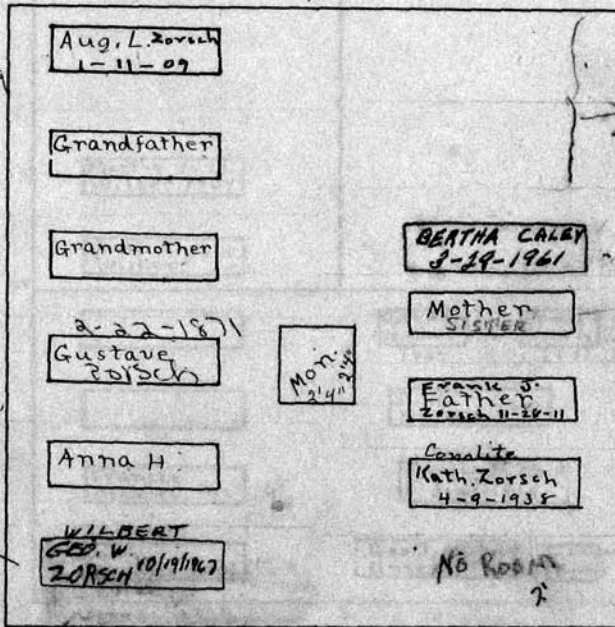 Aug. L. Zorsch
1-11-09
Grandfather
Grandmother
2-22-1871
Gustave
Zorsch
Anna H.
WILBERT
GEO. W.
ZORSCH 10/19/1967
Mon.
2'4" 2'4"
BERTHA CALEY
3-29-1961
Mother
SISTER
Frank J.
Father
Zorsch 11-28-11
Conolite
Kath. Zorsch
4-9-1938
NO ROOM
2'